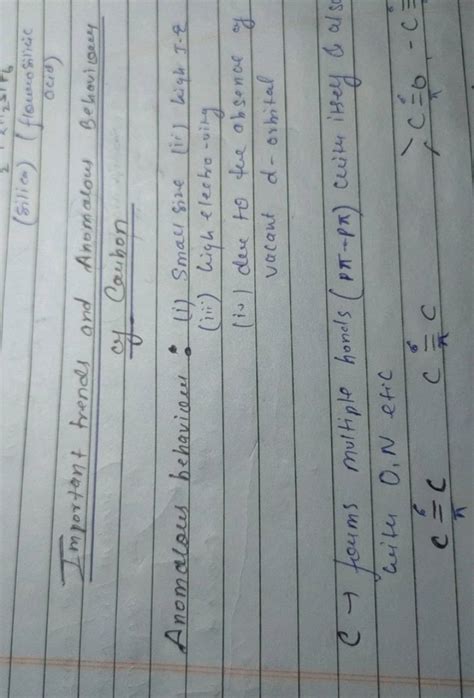 (Silica) (flourosilicic
acid)
Important trends and Anomalous Behaviour
of Carbon
Anomalous behaviour : (i) Small size (ii) high I.E
(iii) high electro-vity
(iv) due to the absense of
vacant d-orbital
C → forms multiple bonds (pπ-pπ) with itself & also
with O,N etic
C=C C≡C C=O
σ π σ π σ π